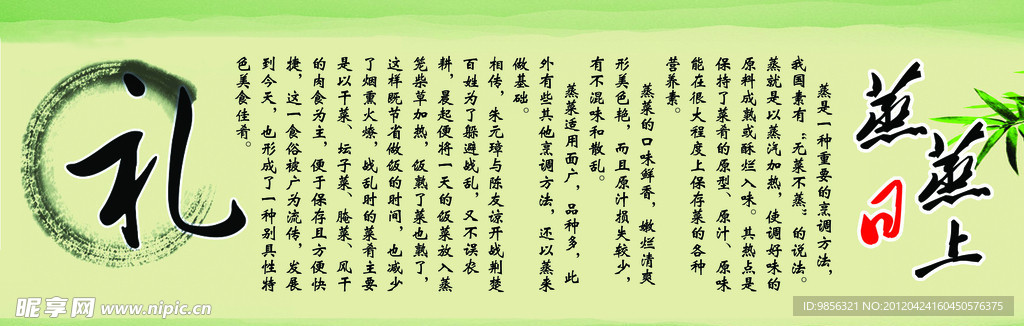 蒸蒸日上
蒸是一种重要的烹调方法，
我国素有“无菜不蒸”的说法。
蒸就是以蒸汽加热，使调好味的
原料成熟或酥烂入味。其热点是
保持了菜肴的原型、原汁、原味
能在很大程度上保存菜的各种
营养素。
蒸菜的口味鲜香，嫩烂清爽
形美色艳，而且原汁损失较少，
有不混味和散乱。
蒸菜适用面广，品种多，此
外有些其他烹调方法，还以蒸来
做基础。
相传，朱元璋与陈友谅开战荆楚
百姓为了躲避战乱，又不误农
耕，晨起便将一天的饭菜放入蒸
笼柴草加热，饭熟了菜也熟了，
这样既节省做饭的时间，也减少
了烟熏火燎，战乱时的菜肴主要
是以干菜、坛子菜、腌菜、风干
的肉食为主，便于保存且方便快
捷，这一食俗被广为流传，发展
到今天，也形成了一种别具性特
色美食佳肴。
礼
昵享网 www.nipic.cn
ID:9856321 NO:20120424160450576375